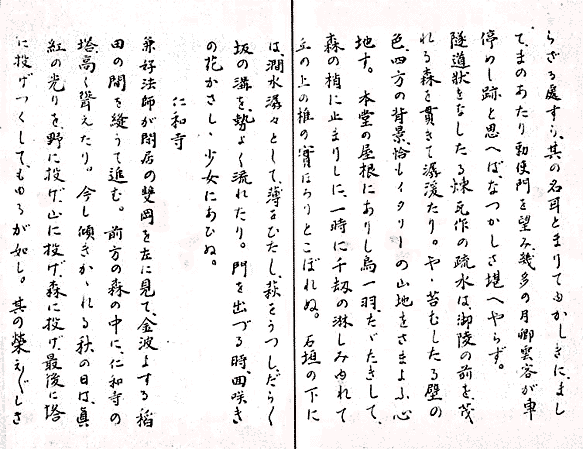 らざる處すら、其の名耳とまりてゆかしきに、まし
て、まのあたり勅使門を望み、幾多の月卿雲客が車
停めし跡と思へば、なつかしさ堪へやらず。
隧道狀をなしたる煉瓦作の疏水は、御陵の前を、茂
れる森を貫きて潺湲たり。や丶苔むしたる壁の
色、四方の背景、恰もイタリーの山地をさまよふ心
地す。本堂の屋根にありし烏一羽、たゞたきして、
森の梢に止まりしに、一時に千刧の淋しみゆれて
丘の上の椎の實はらりとこぼれぬ。石垣の下に
は、澗水潺々として、薄をひたし、萩をうつし、だらく
坂の溝を、勢よく流れたり。門を出づる時、田咲き
の花かざし丶少女にあひぬ。
仁和寺
兼好法師が閑居の雙岡を左に見て、金波よする稻
田の間を縫うて進む。前方の森の中に、仁和寺の
塔高く聳えたり。今し傾きか丶れる秋の日は、眞
紅の光りを野に投げ、山に投げ、森に投げ、最後に塔
に投げつくしてもゆるが如し。其の榮え